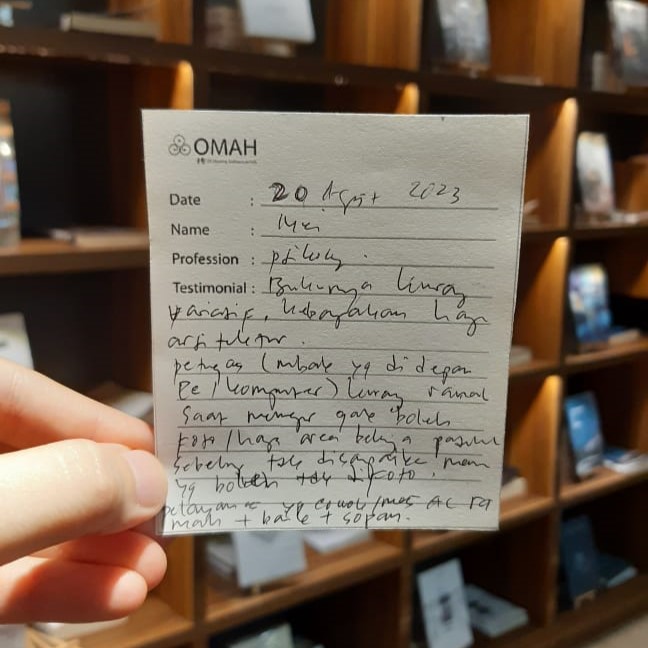 OMAH
Date : 20 Agust 2023
Name :
Profession : psikolog.
Testimonial : Bukunya kurang
variatif, kebanyakan hanya
arsitektur.
petugas (mbak yg di depan
PC / komputer) kurang ramah
saat menegur gak boleh
foto / hanya area
sebelumnya tdk disampaikan mana
yg boleh tdk difoto.
pelayanan yg cowok / mas AC ra
mah + baik + sopan.